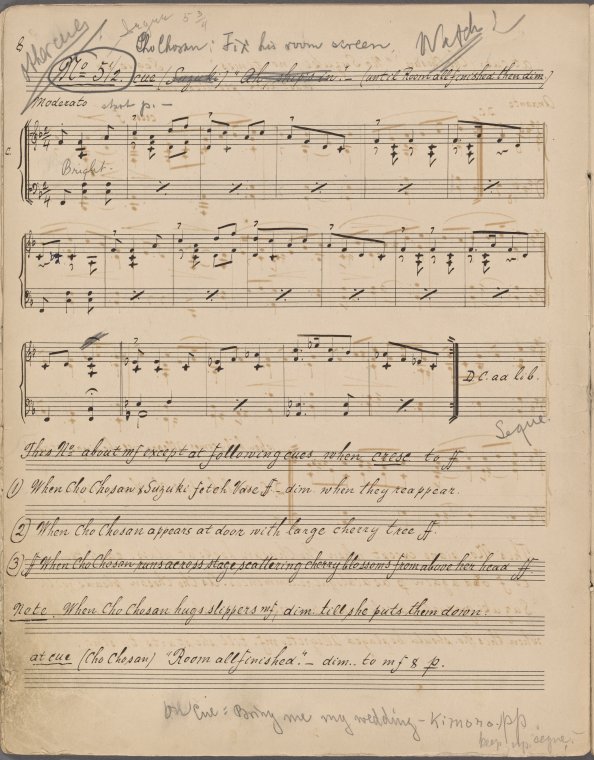 Segue 5 3/4
other cues
8 Cho Chosan: Fix his room screen. Watch!
No 5 1/2. cue (Suzuki) "Ah, ships in"! – (until Room all finished then dim)
Moderato start p. –
C.
Bright.
7 7 7 7 7 7
7 7 7 7 7 7
7
D.C. ad lib.
Segue
This No about mf except at following cues, when cresc to ff
(1) When Cho Chosan & Suzuki fetch Vase ff – dim. when they reappear.
(2) When Cho Chosan appears at door with large cherry tree ff.
(3) ff When Cho Chosan runs across stage, scattering cherry blossoms from above her head ff
Note. When Cho Chosan hugs slippers mf, dim. till she puts them down.
at cue (Cho Chosan) "Room all finished." – dim. to mf & p.
on Cue: Bring me my wedding – Kimona. pp
keep up segue.